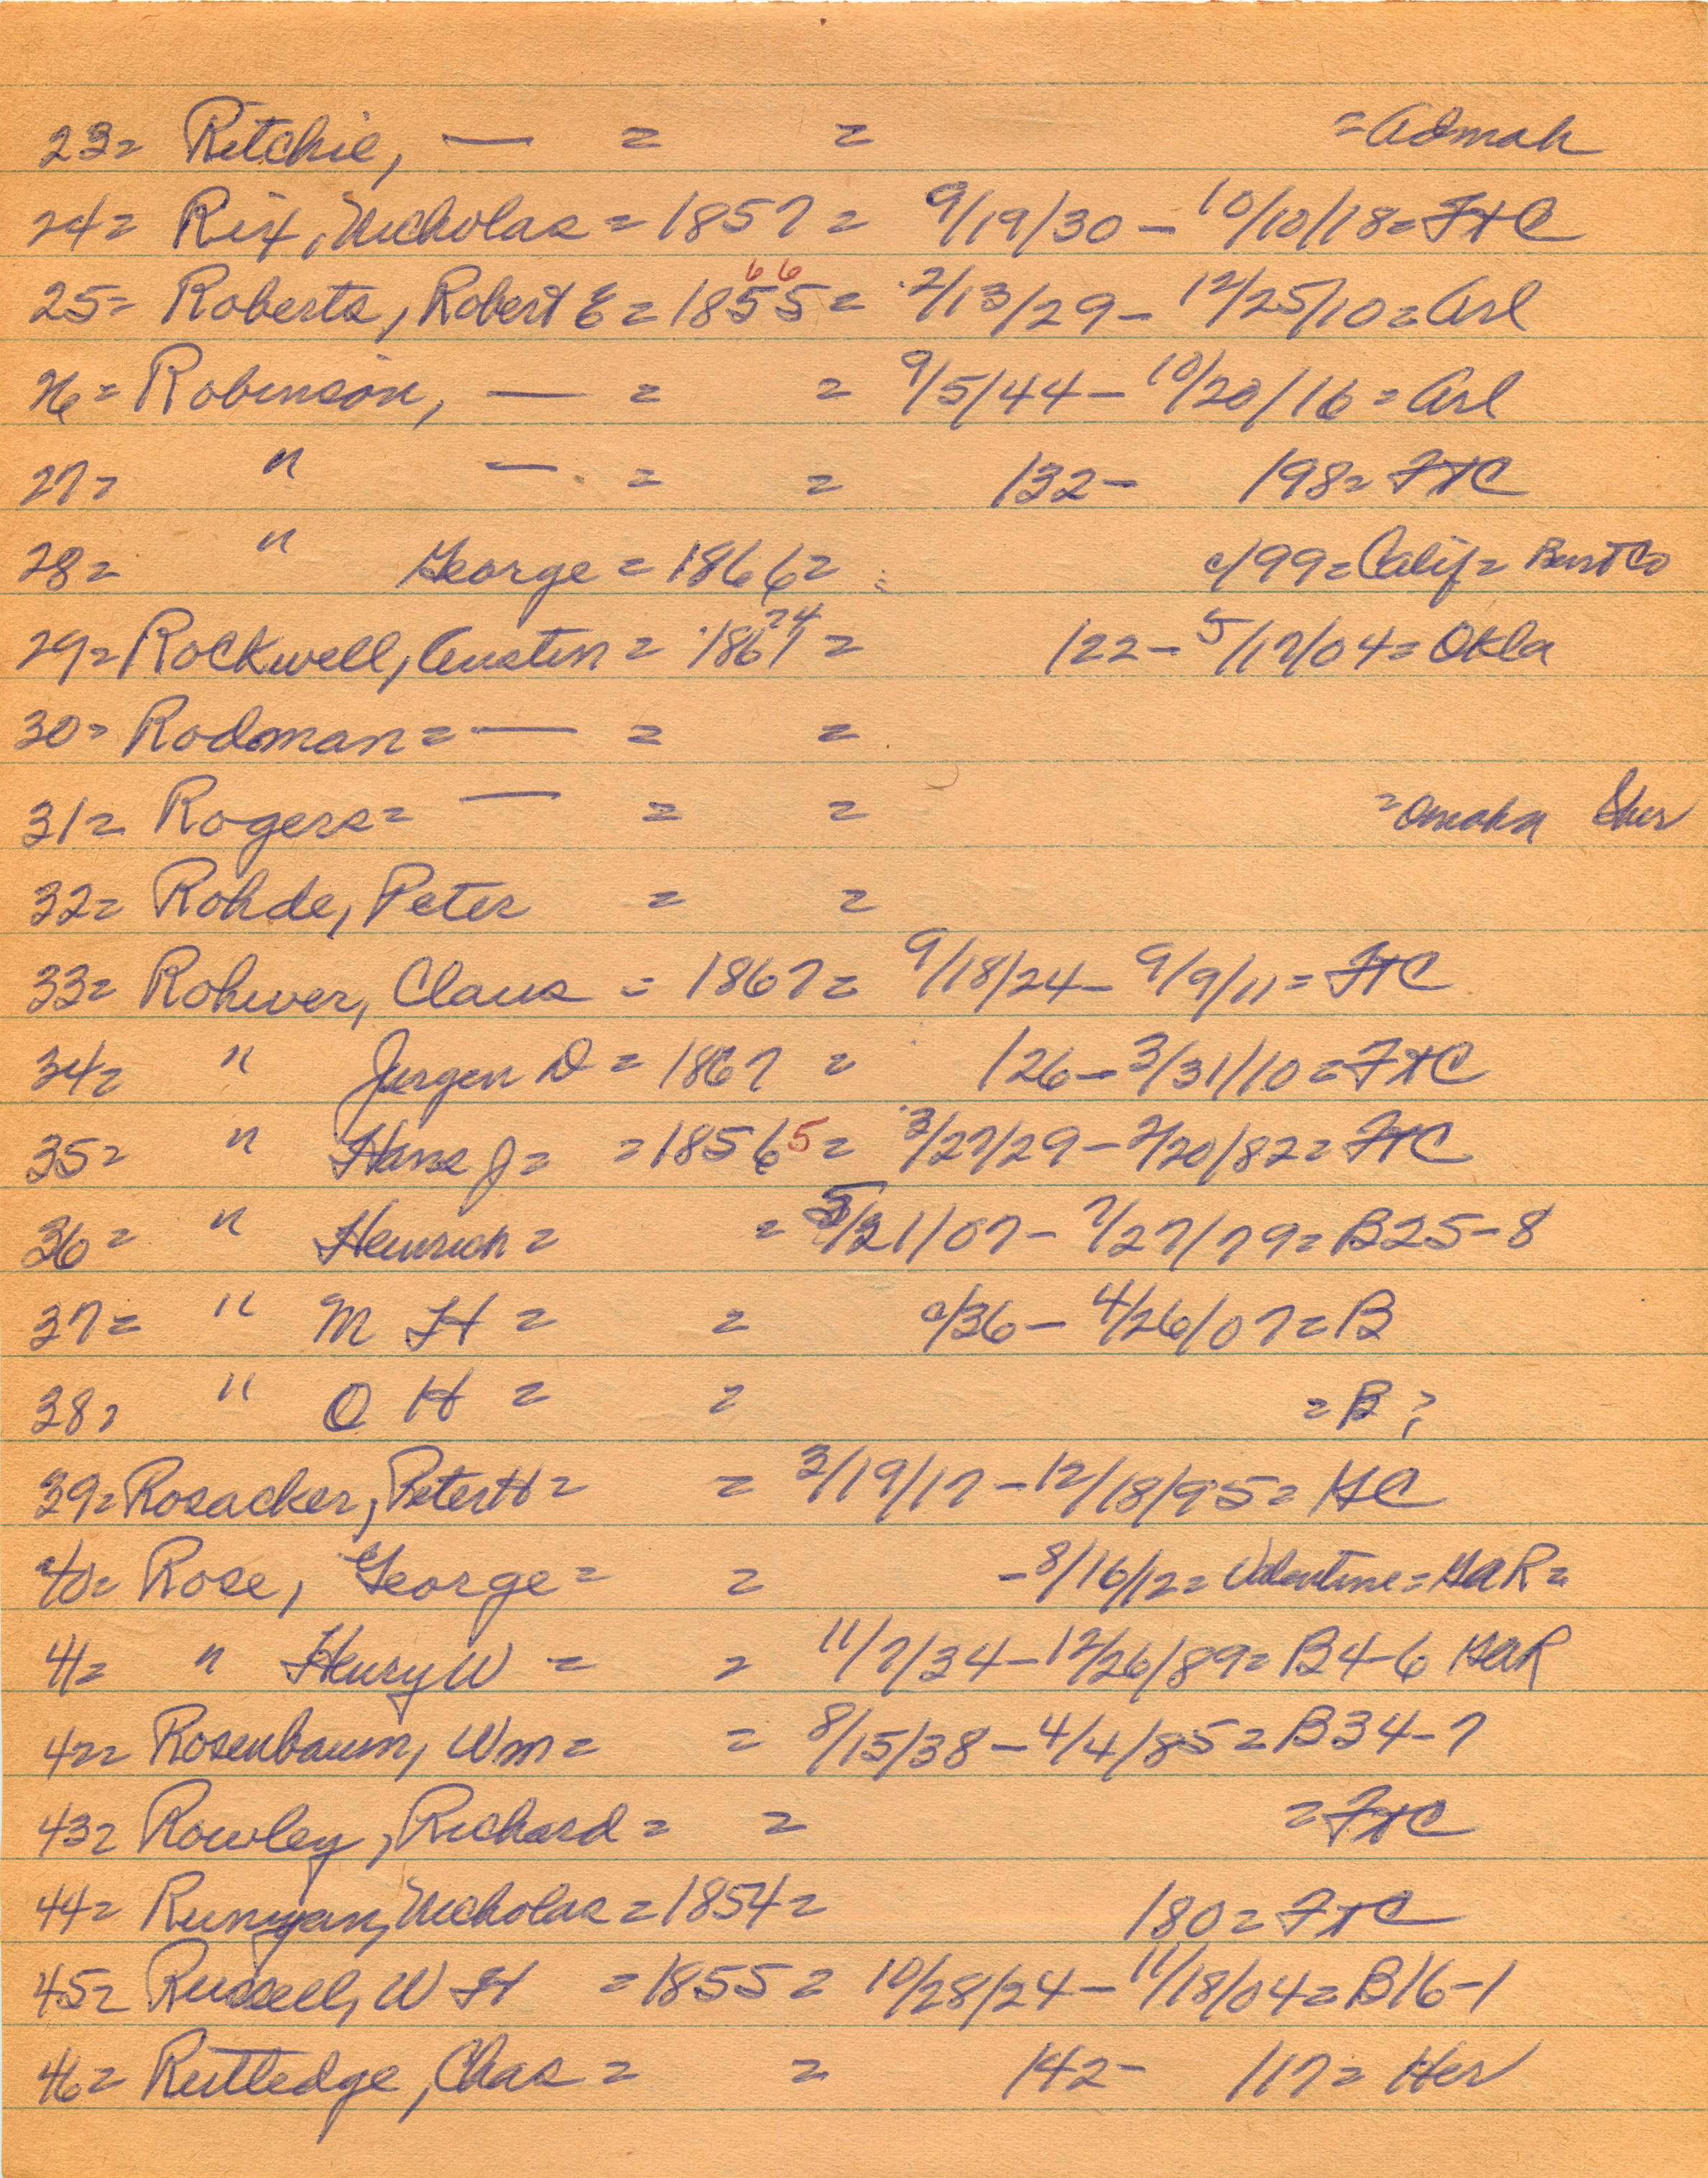 23= Ritchie, — = = =Admah
24= Rix, Nicholas = 1857 = 9/19/30 - 10/10/18= FtC
25= Roberts, Robert E = 1855 66 = 2/13/29 - 12/25/10 = Arl
26= Robinson, — = = 9/5/44 - 10/20/16 = Arl
27= " — = = /32 - /98= FtC
28= " George = 1866= c/99= Calif= Burt Co
29= Rockwell, Austin = 1867 74 = /22 - 5/17/04= Okla
30= Rodman = — = =
31= Rogers= — = = =Omaha Sher
32= Rohde, Peter = =
33= Rohwer, Claus = 1867= 9/18/24 - 9/9/11= FtC
34= " Jurgen D = 1867 = /26 - 3/31/10 = FtC
35= " Hans J = =1856 5= 3/27/29 - 2/20/82= FtC
36= " Heinrich = = /21/07 - 7/27/79= B25-8
37= " M H = = c/36 - 4/26/07= B
38= " O H = = = B ?
39= Rosacker, Peter H = = 3/19/17 - 12/18/95= HC
40= Rose, George = = - 8/16/12= Valentine= GAR=
41= " Henry W = = 11/7/34 - 12/26/89= B4-6 GAR
42= Rosenbaum, Wm = = 8/15/38 - 4/4/85 = B34-7
43= Rowley, Richard = = = FtC
44= Runyan, Nicholas = 1854= /80= FtC
45= Russell, W H =1855= 10/28/24 - 11/18/04= B16-1
46= Rutledge, Chas = = /42 - /17= Her